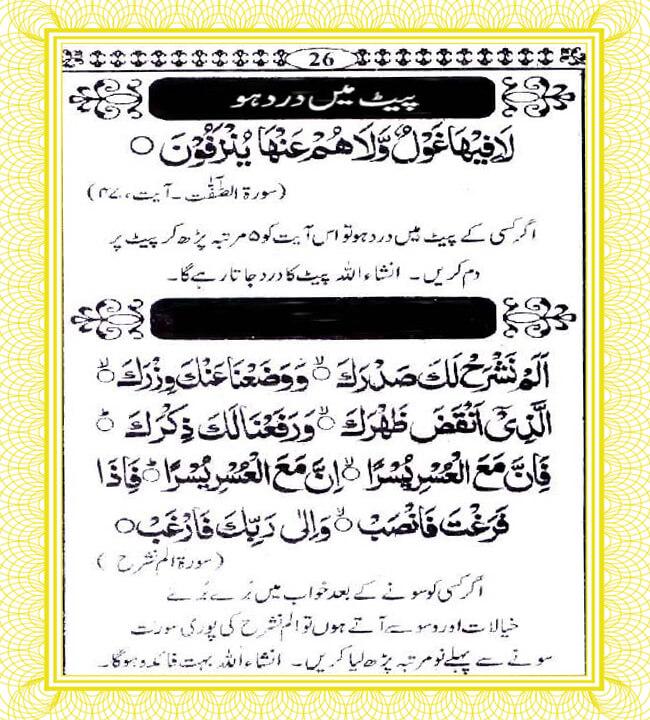 26
پیٹ میں درد ہو
لَا فِيْهَا غَوْلٌ وَّلَا هُمْ عَنْهَا يُنْزَفُوْنَ ○
(سورۃ الصّٰفّٰت ۔ آیت، ۴۷)
اگر کسی کے پیٹ میں درد ہو تو اس آیت کو ۵ مرتبہ پڑھ کر پیٹ پر
دم کریں۔ انشاء اللہ پیٹ کا درد جاتا رہے گا۔
اَلَمْ نَشْرَحْ لَكَ صَدْرَكَ ○ وَوَضَعْنَا عَنْكَ وِزْرَكَ ○
الَّذِیْۤ اَنْقَضَ ظَهْرَكَ ○ وَرَفَعْنَا لَكَ ذِكْرَكَ ○
فَاِنَّ مَعَ الْعُسْرِ يُسْرًا ○ اِنَّ مَعَ الْعُسْرِ يُسْرًا ○ فَاِذَا
فَرَغْتَ فَانْصَبْ ○ وَاِلٰى رَبِّكَ فَارْغَبْ ○
(سورۃ الم نشرح)
اگر کسی کو سونے کے بعد خواب میں بُرے بُرے
خیالات اور وسوسے آتے ہوں تو الم نشرح کی پوری سورت
سونے سے پہلے نو مرتبہ پڑھ لیا کریں۔ انشاء اللہ بہت فائدہ ہوگا۔